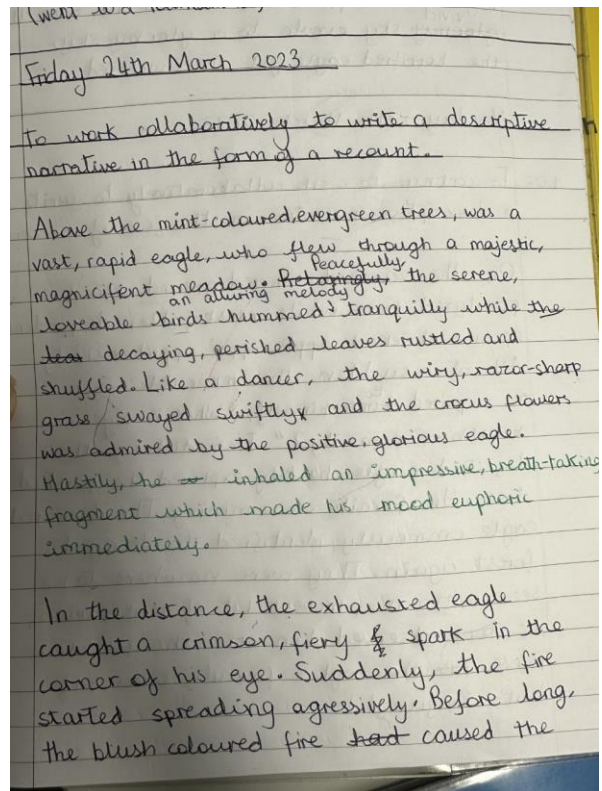 (went to a
Friday 24th March 2023
To work collaboratively to write a descriptive
narrative in the form of a recount.
Above the mint-coloured, evergreen trees, was a
vast, rapid eagle, who flew through a majestic,
Peacefully,
magnicifent meadow. Relaxingly, the serene,
an alluring melody
loveable birds hummed tranquilly while the
decaying, perished leaves rustled and
shuffled. Like a dancer, the wiry, razor-sharp
grass swayed swiftly and the crocus flowers
was admired by the positive, glorious eagle.
Hastily, he inhaled an impressive, breath-taking
fragment which made his mood euphoric
immediately.
In the distance, the exhausted eagle
caught a crimson, fiery spark in the
corner of his eye. Suddenly, the fire
started spreading agressively. Before long,
the blush coloured fire had caused the